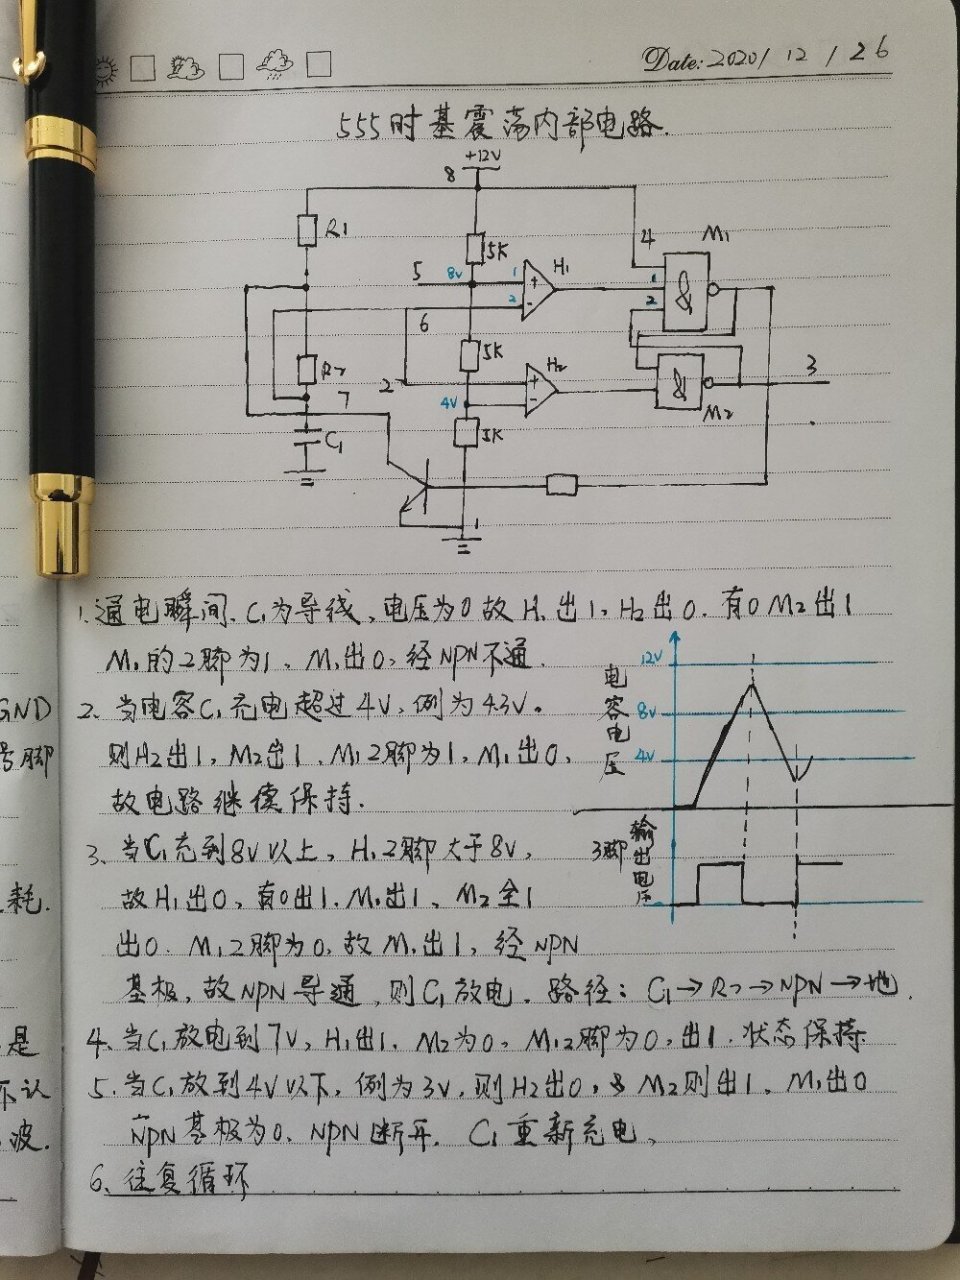 Date: 2020/ 12 / 26
555时基震荡内部电路.
+12V
8
R1
5K
4
M1
5
8V
1
+
H1
1
2
-
2
&
6
R2
5K
H2
3
2
7
+
&
4V
-
M2
C1
5K
1
1.通电瞬间、C1为导线、电压为0故H1出1,H2出0.有0 M2出1
M1的2脚为1、M1出0,经NPN不通.
2、当电容C1充电超过4V,例为4.3V。
则H2出1,M2出1、M1 2脚为1,M1出0,
故电路继续保持.
3、当C1充到8V以上,H1 2脚大于8V,
故H1出0,有0出1.M1出1、M2全1
出0.M1 2脚为0,故M1出1,经NPN
基极,故NPN导通,则C1放电.路径:C1→R2→NPN→地.
4、当C1放电到7V,H1出1.M2为0,M1 2脚为0,出1.状态保持
5.当C1放到4V以下,例为3V,则H2出0,M2则出1、M1出0
NPN基极为0、NPN断开.C1重新充电、
6、往复循环
电容电压
12V
8V
4V
3脚
输出电压
GND
号脚
耗.
是
不认
波.